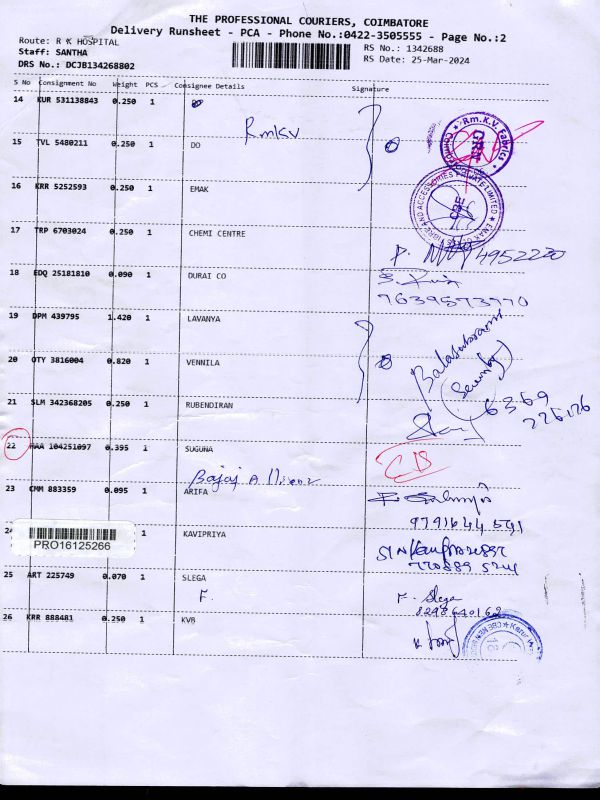 THE PROFESSIONAL COURIERS, COIMBATORE
Delivery Runsheet - PCA - Phone No.:0422-3505555 - Page No.:2
Route: R K HOSPITAL
Staff: SANTHA
DRS No.: DCJB134268802
RS No.: 1342688
RS Date: 25-Mar-2024
S No Consignment No Weight PCS Consignee Details Signature
14 KUR 531138843 0.250 1
RmKV
Rm.K.V. Fabrics
15 TVL 5480211 0.250 1 DO
16 KRR 5252593 0.250 1 EMAK
17 TRP 6703024 0.250 1 CHEMI CENTRE
4952220
18 EDQ 25181810 0.090 1 DURAI CO
7639573770
19 DPM 439795 1.420 1 LAVANYA
20 OTY 3816004 0.820 1 VENNILA
21 SLM 342368205 0.250 1 RUBENDIRAN
6369
226126
22 MAA 104251097 0.395 1 SUGUNA
Bajaj
23 CMM 883359 0.095 1 ARIFA
9791644541
PRO16125266
1 KAVIPRIYA
25 ART 225749 0.070 1 SLEGA
F.
F. Slega
8298640162
26 KRR 888481 0.250 1 KVB